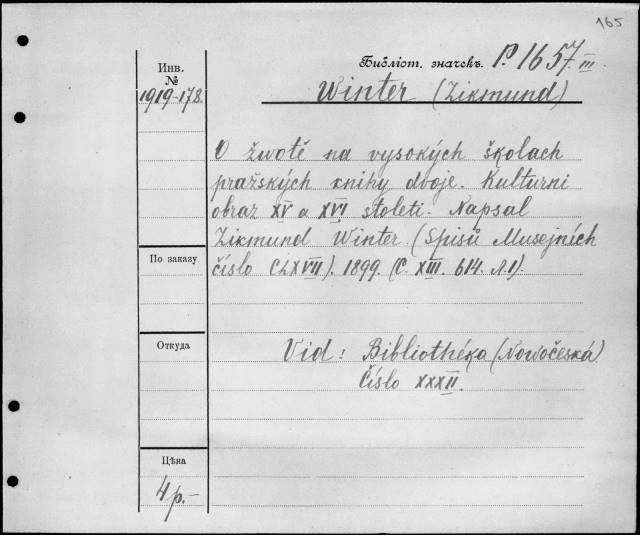 165
Библіот. значекъ. P. 1657. III
Инв.
№
1919-178.
Winter (Zikmund)
O životě na vysokých školach
pražských knihy dvoje. Kulturni
obraz XV a XVI stoleti. Napsal
Zikmund Winter (Spisů Musejních
číslo CLXVII). 1899. (C. XIII. 614. Л.1).
По заказу
Откуда
Vid: Bibliothéka (Nowočeská)
Číslo XXXII.
Цѣна
4 р.-